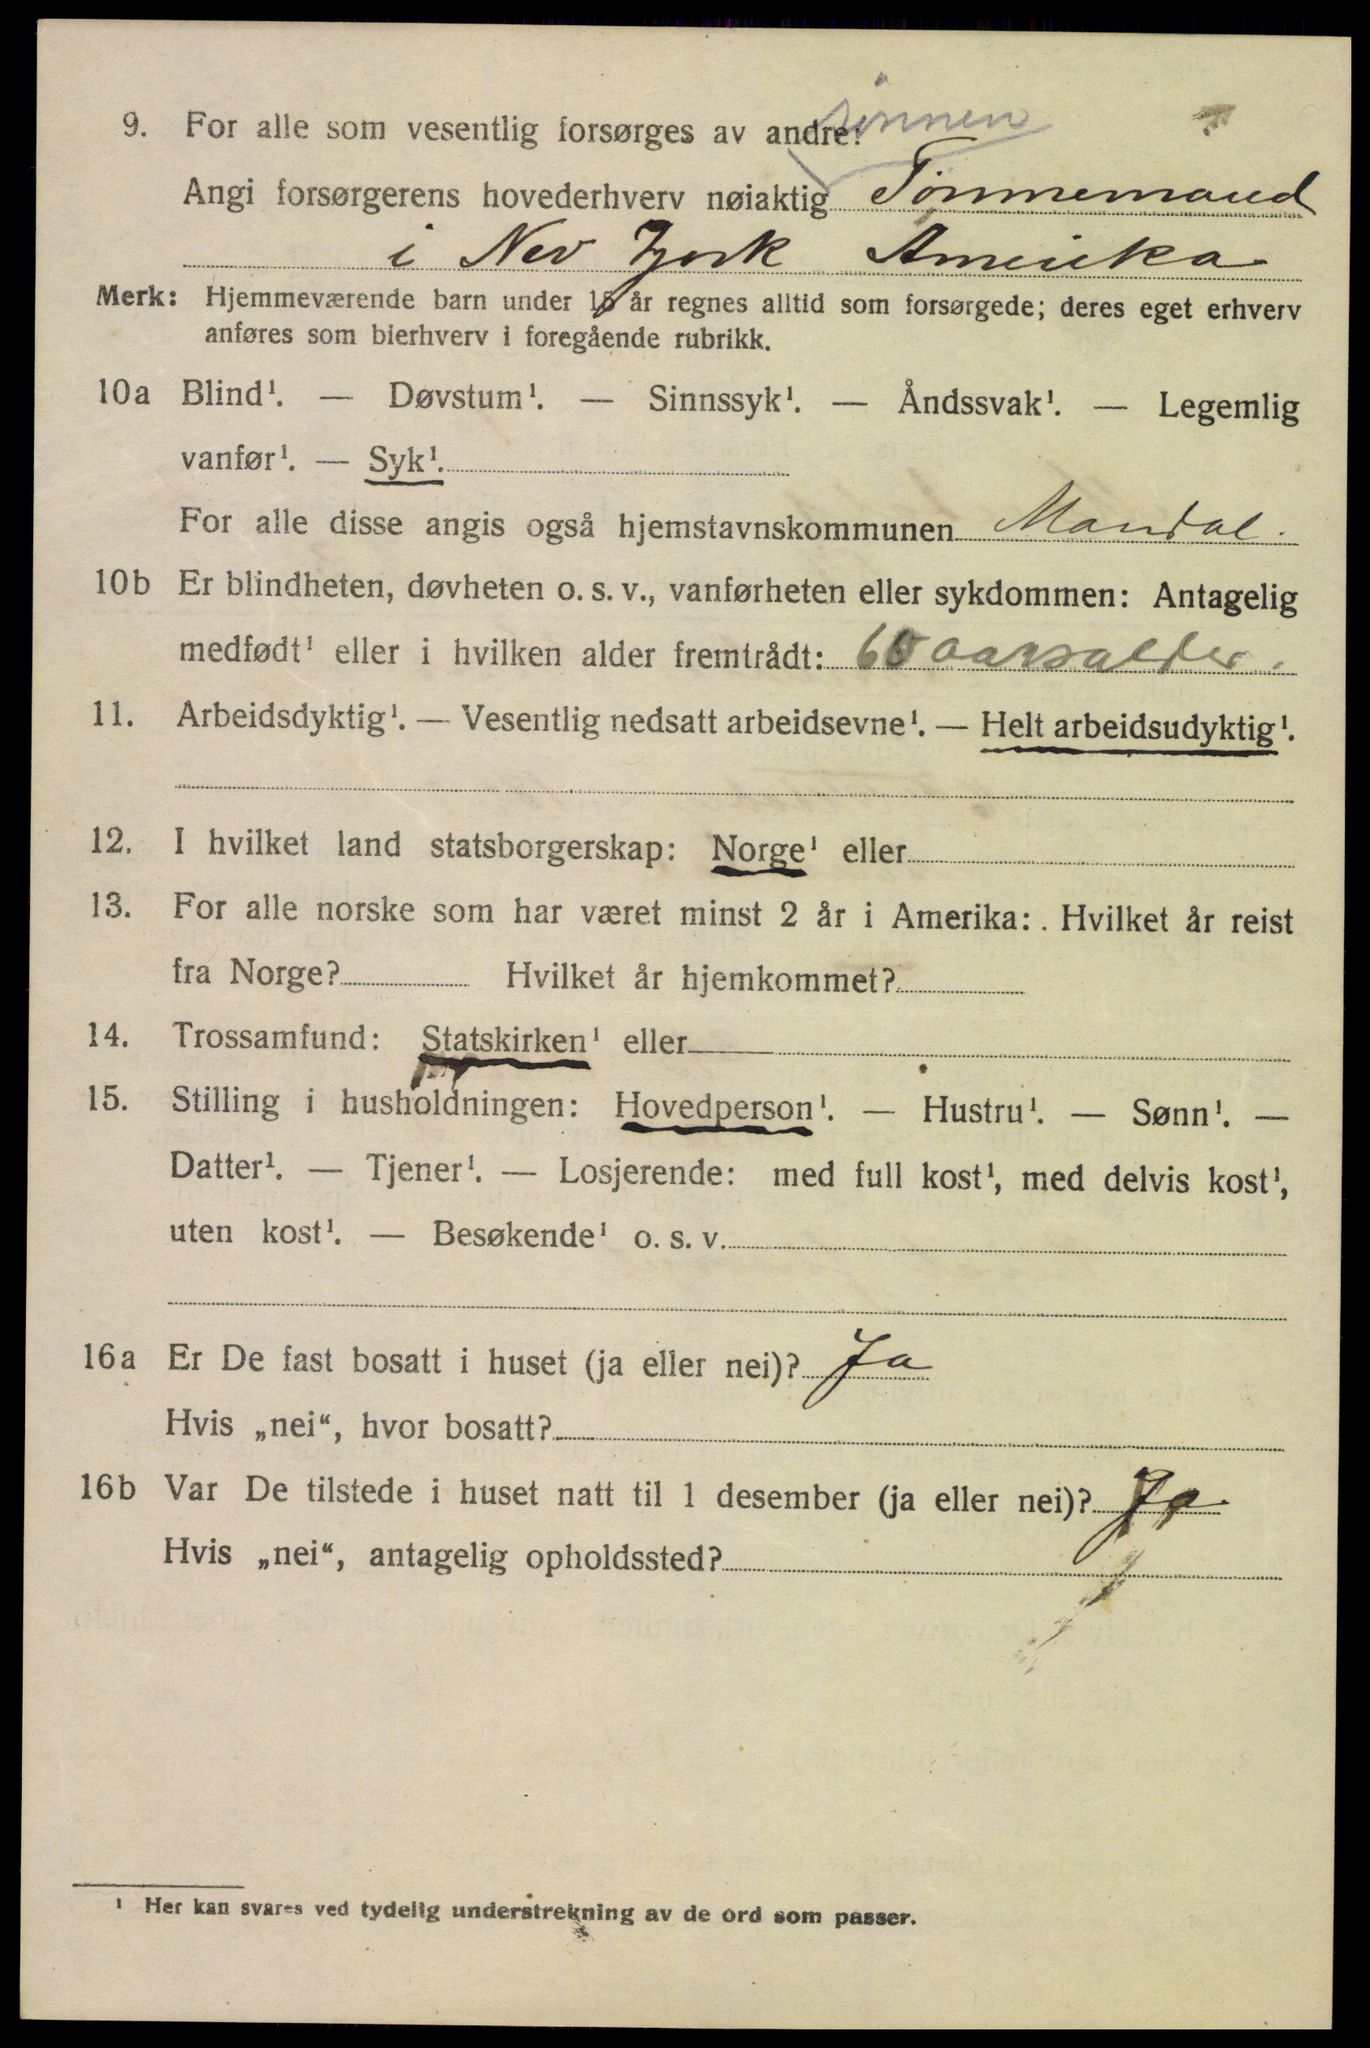 sønnen
9. For alle som vesentlig forsørges av andre:
Angi forsørgerens hovederhverv nøiaktig Tømmemand
i Nev Yjork Amerika
Merk: Hjemmeværende barn under 15 år regnes alltid som forsørgede; deres eget erhverv
anføres som bierhverv i foregående rubrikk.
10a Blind¹. — Døvstum¹. — Sinnssyk¹. — Åndssvak¹. — Legemlig
vanfør¹. — Syk¹.
For alle disse angis også hjemstavnskommunen Mandal.
10b Er blindheten, døvheten o. s. v., vanførheten eller sykdommen: Antagelig
medfødt¹ eller i hvilken alder fremtrådt: 60 aarsalder.
11. Arbeidsdyktig¹. — Vesentlig nedsatt arbeidsevne¹. — Helt arbeidsudyktig¹.
12. I hvilket land statsborgerskap: Norge¹ eller
13. For alle norske som har været minst 2 år i Amerika: Hvilket år reist
fra Norge? Hvilket år hjemkommet?
14. Trossamfund: Statskirken¹ eller
15. Stilling i husholdningen: Hovedperson¹. — Hustru¹. — Sønn¹. —
Datter¹. — Tjener¹. — Losjerende: med full kost¹, med delvis kost¹,
uten kost¹. — Besøkende¹ o. s. v.
16a Er De fast bosatt i huset (ja eller nei)? Ja
Hvis „nei“, hvor bosatt?
16b Var De tilstede i huset natt til 1 desember (ja eller nei)? Ja
Hvis „nei“, antagelig opholdssted?
¹ Her kan svares ved tydelig understrekning av de ord som passer.